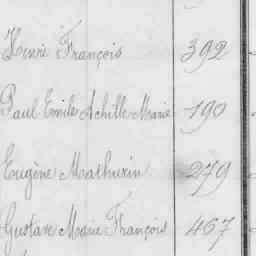 Henri François 392
Paul Emile Achille Marie 190
Eugène Mathurin 279
Gustave Marie François 467